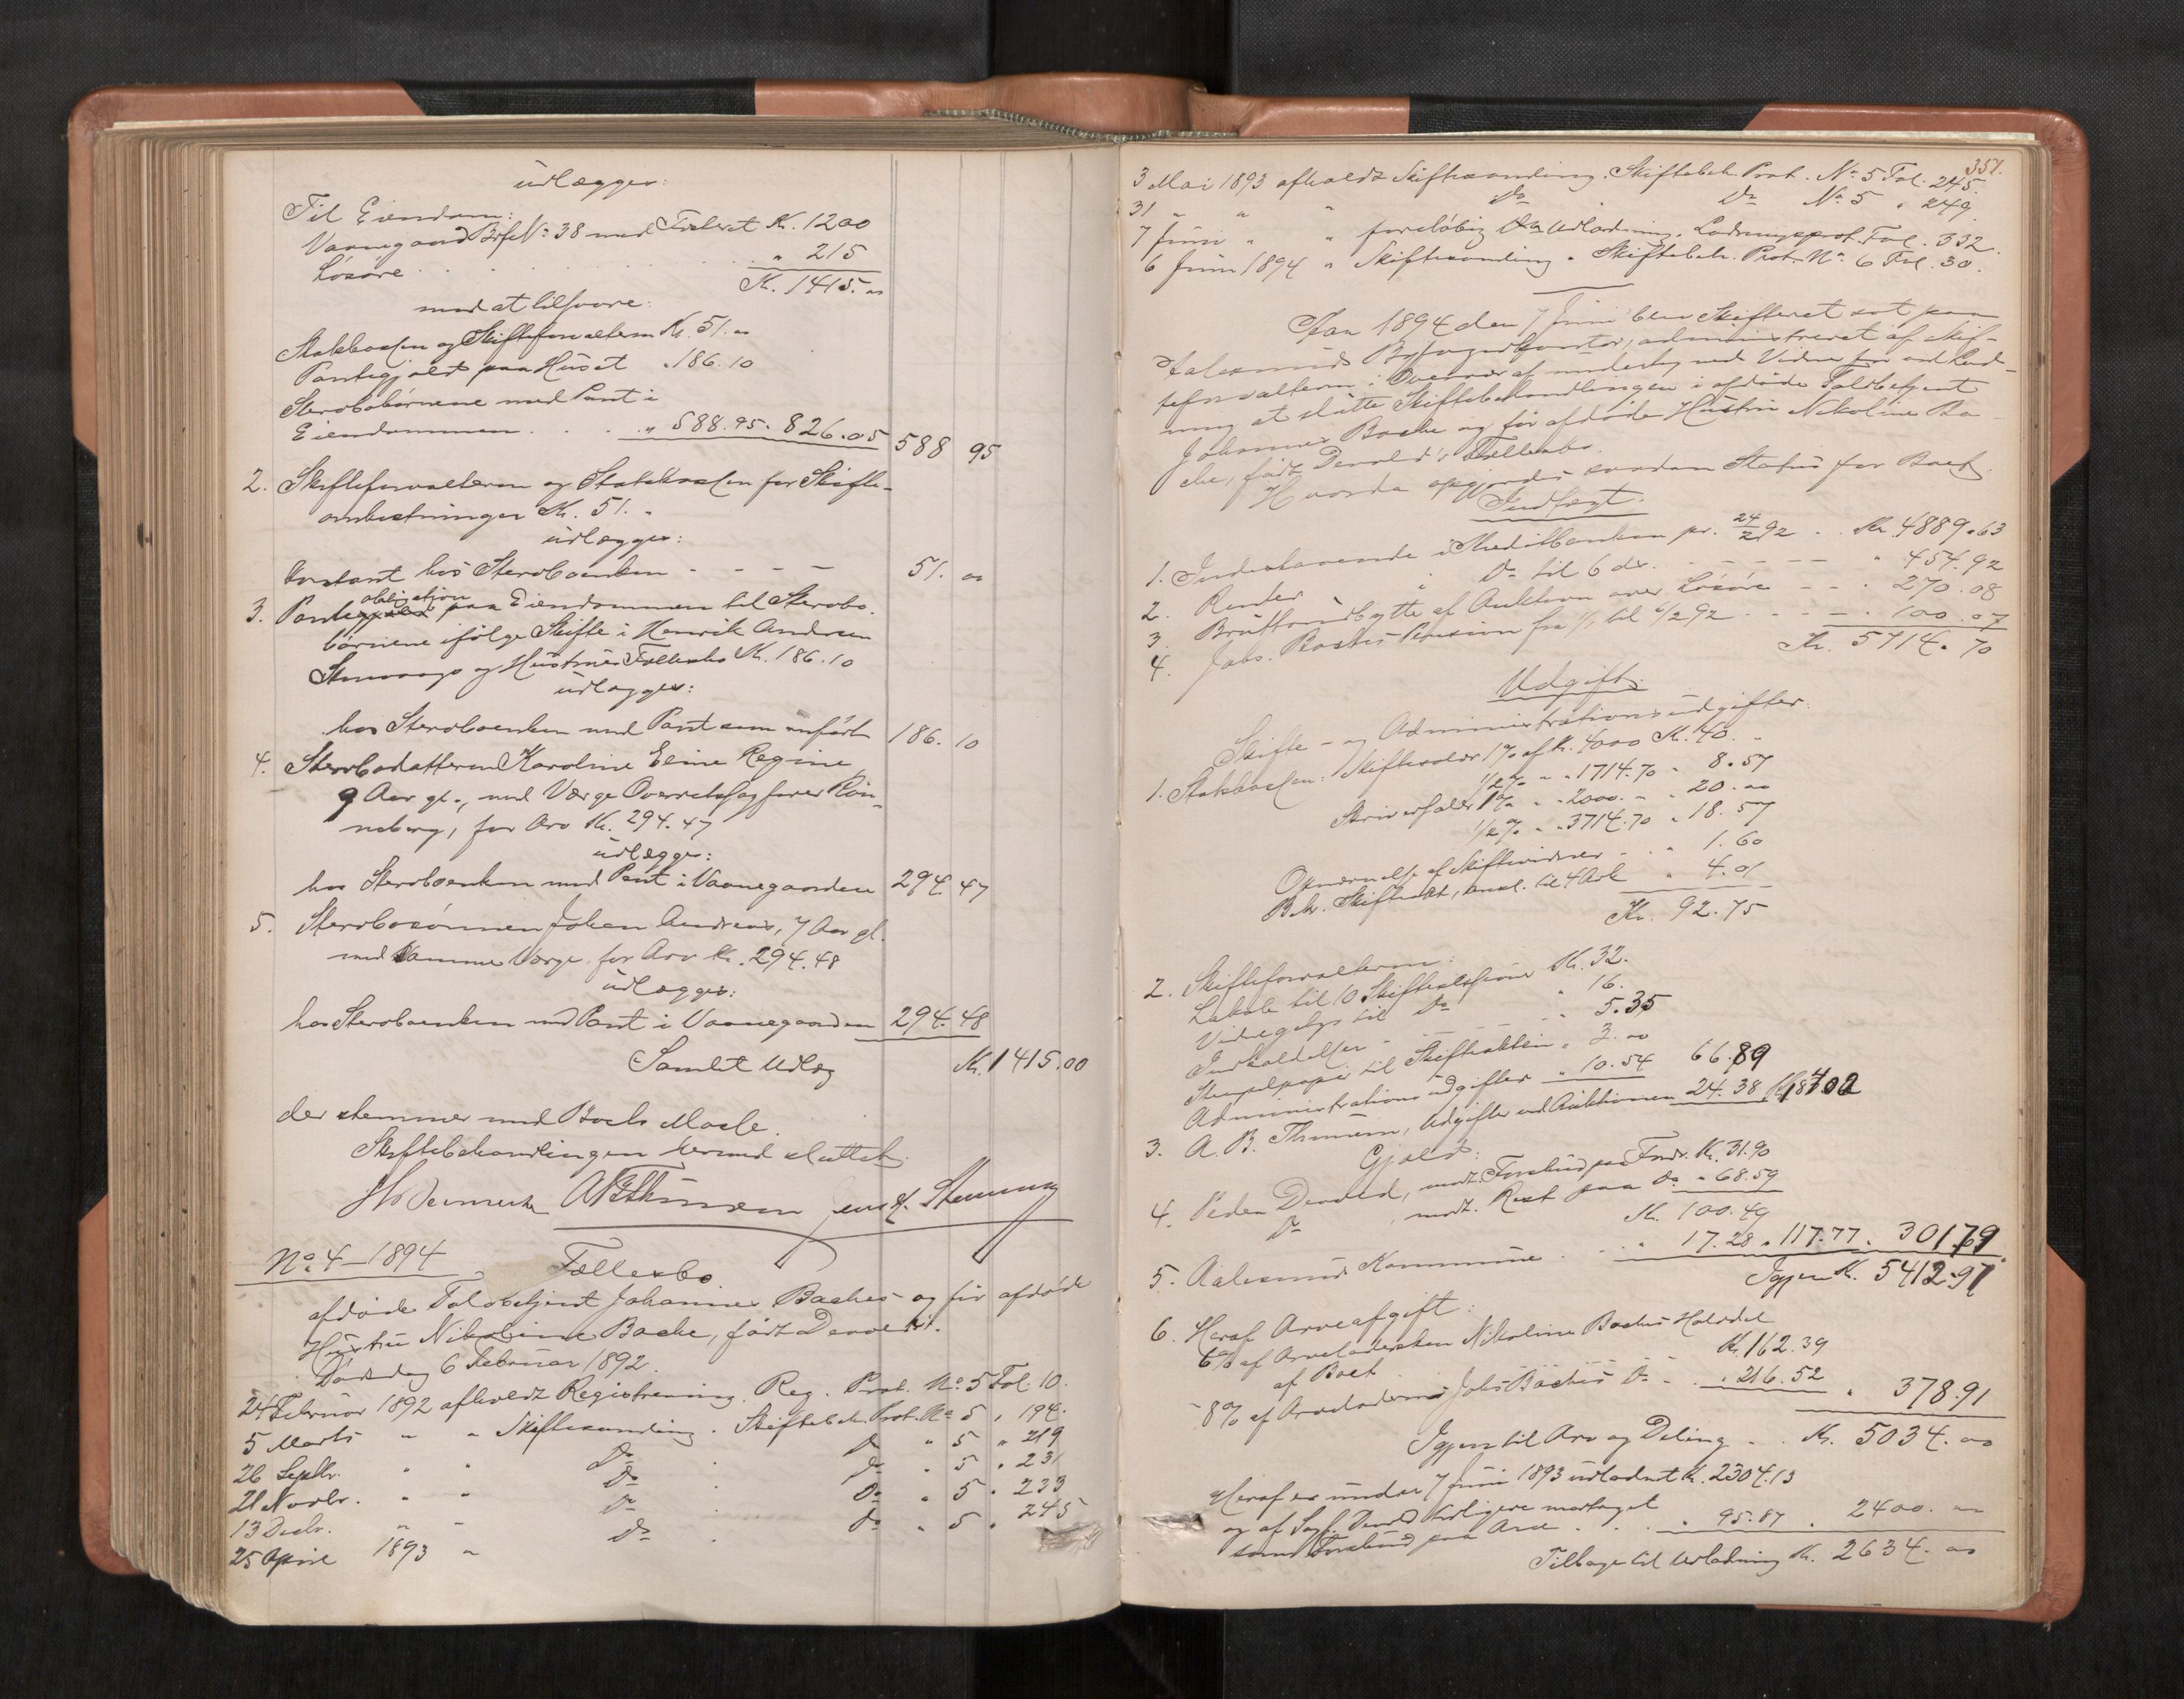 udlægges:
Til Eiendom:
Vaaningaard Bf. No 38 med Inventar Kr. 1200
Løsøre . . . . . . " 215
Kr. 1415. 00
med at tilsvare:
Statskassen og Skifteforvalteren Kr. 51. 00
Pantegjæld paa Huset " 186.10
Stervbobørnene med Pant i
Eiendommen . . . " 588.95. 826.05 588 95
2. Skifteforvalteren og Statskassen for Skifte-
omkostninger Kr. 51. "
udlægges:
Kontant hos Stervboenken - - - - 51. 00
3. Panteobligation paa Eiendommen til Stervbo-
børnene ifølge Skifte i Henrik Andersen
og Hustrues Fællesbo Kr. 186.10
udlægges:
hos Stervboenken med Pant som anført 186. 10
4. Stervbodatteren Karoline Eline Regine
9 Aar gl., med Værge Overretssagfører Rön-
neberg, for Arv Kr. 294.47
udlægges:
hos Stervboenken med Pant i Vaaningaarden 294. 47
5. Stervbosønnen Johan Andreas, 7 Aar gl.
med samme Værge, for Arv Kr. 294.48
udlægges:
hos Stervboenken med Pant i Vaaningaarden 294. 48
Samlet Udlæg Kr. 1415.00
der stemmer med Boets Masse.
Skiftebehandlingen dermed sluttet.
No 4 - 1894 Fællesbo
afdøde Toldbetjent Johannes Backes og før afdøde
Hustru Nikoline Backe, født Devold.
Dødsdag 6 Februar 1892.
24 Februar 1892 afholdt Registrering. Reg. Prot. No 5 Fol. 10.
5 Marts " " Skiftesamling. Skiftebeh. Prot. No 5 " 194.
26 Septbr. " " Do Do " 5 " 219
21 Novbr. " " Do Do " 5 " 231
13 Decbr. " " Do Do " 5 " 233
25 April 1893 " Do Do " 5 " 245
351.
3 Mai 1893 afholdt Skiftesamling. Skiftebeh. Prot. No 5 Fol. 245.
31 " " " Do Do No 5 " 249.
7 Juni " " foreløbig Udlodning. Lodningsprot. Fol. 332.
6 Juni 1894 " Skiftesamling. Skiftebeh. Prot. No 6 Fol. 30.
Aar 1894 den 7 Juni blev Skifteret sat paa
Aalesunds Byfogedkontor, administreret af Skif-
teforvalteren i Overvær af undertegnede Vidner for ved Lod-
ning at slutte Skiftebehandlingen i afdøde Toldbetjent
Johannes Backe og før afdøde Hustru Nikoline Ba-
cke, født Devold's Fællesbo.
Hvorda opgjordes saadan Status for Boet
Indtægt.
1. Indestaaende i Kreditbanken pr. 24/2 92 . . Kr. 4889.63
2. Renter " Do til 6 ds. - - - - " 454.92
3. Bruttoudbytte af Auktion over Løsøre - - - " 270.08
4. Johs. Backes Pension fra 1/1 til 6/2 92 - - - - 100.07
Kr. 5714.70
Udgift:
Skifte- og Administrationsudgifter:
1. Statskassen: Skiftesalær 1% af Kr. 4000 Kr. 40. -
1/2% " " 1714.70 " 8.57
Skriversalær 1% " " 2000. - " 20. 00
1/2% " " 3714.70 " 18.57
Opnævnelse af Skiftevidner - . " 1.60
Bekr. Skifteakt, ansl. til 4 Ark " 4.01
Kr. 92.75
2. Skifteforvalteren:
Lokale til 10 Skiftesessioner Kr. 32.
Vidnegodtg. til Do " 16.
Indkaldelser - - - - " 5.35
Stempelpapir til Skifteakten " 3. 00
Administrationsudgifter " 10.54 66.89
3. A. B. Thimern, Udgifter ved Auktionen 24.38 184.02
Gjæld:
4. Peder Devold, modt. Forskud paa Fordr. Kr. 31.90
Do , modt. Rest paa Do " 68.59
Kr. 100.49
5. Aalesunds Kommune . . . " 17.28 " 117.77 " 301.79
Igjen Kr. 5412.91
6. Heraf Arveafgift:
6% af Arveladersken Nikoline Backes Halvdel
af Boet Kr. 162.39
8% af Arveladeren Johs. Backes Do - . " 216.52 " 378.91
Igjen til Arv og Deling . . Kr. 5034. 00
Heraf er under 7 Juni 1893 udloddet Kr. 2304.13
og af Devold tidligere modtaget
som Forskud paa Arv . . . " 95.87 " 2400. 00
Tilbage til Udlodning Kr. 2634. 00